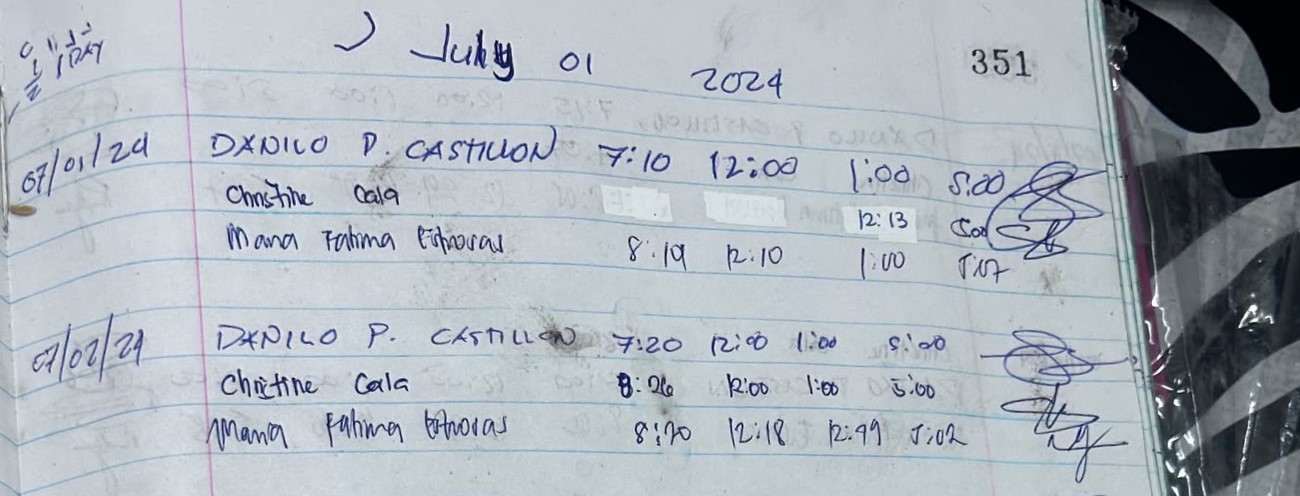 July 01 2024 351
07/01/24 DANILO P. CASTILLON 7:10 12:00 1:00 5:00
Christine Cala 12:13 5:00
Maria Fatima 8:19 12:10 1:00 5:07
07/02/24 DANILO P. CASTILLON 7:20 12:00 1:00 5:00
Christine Cala 8:26 12:00 1:00 5:00
Maria Fatima 8:20 12:18 12:49 5:02